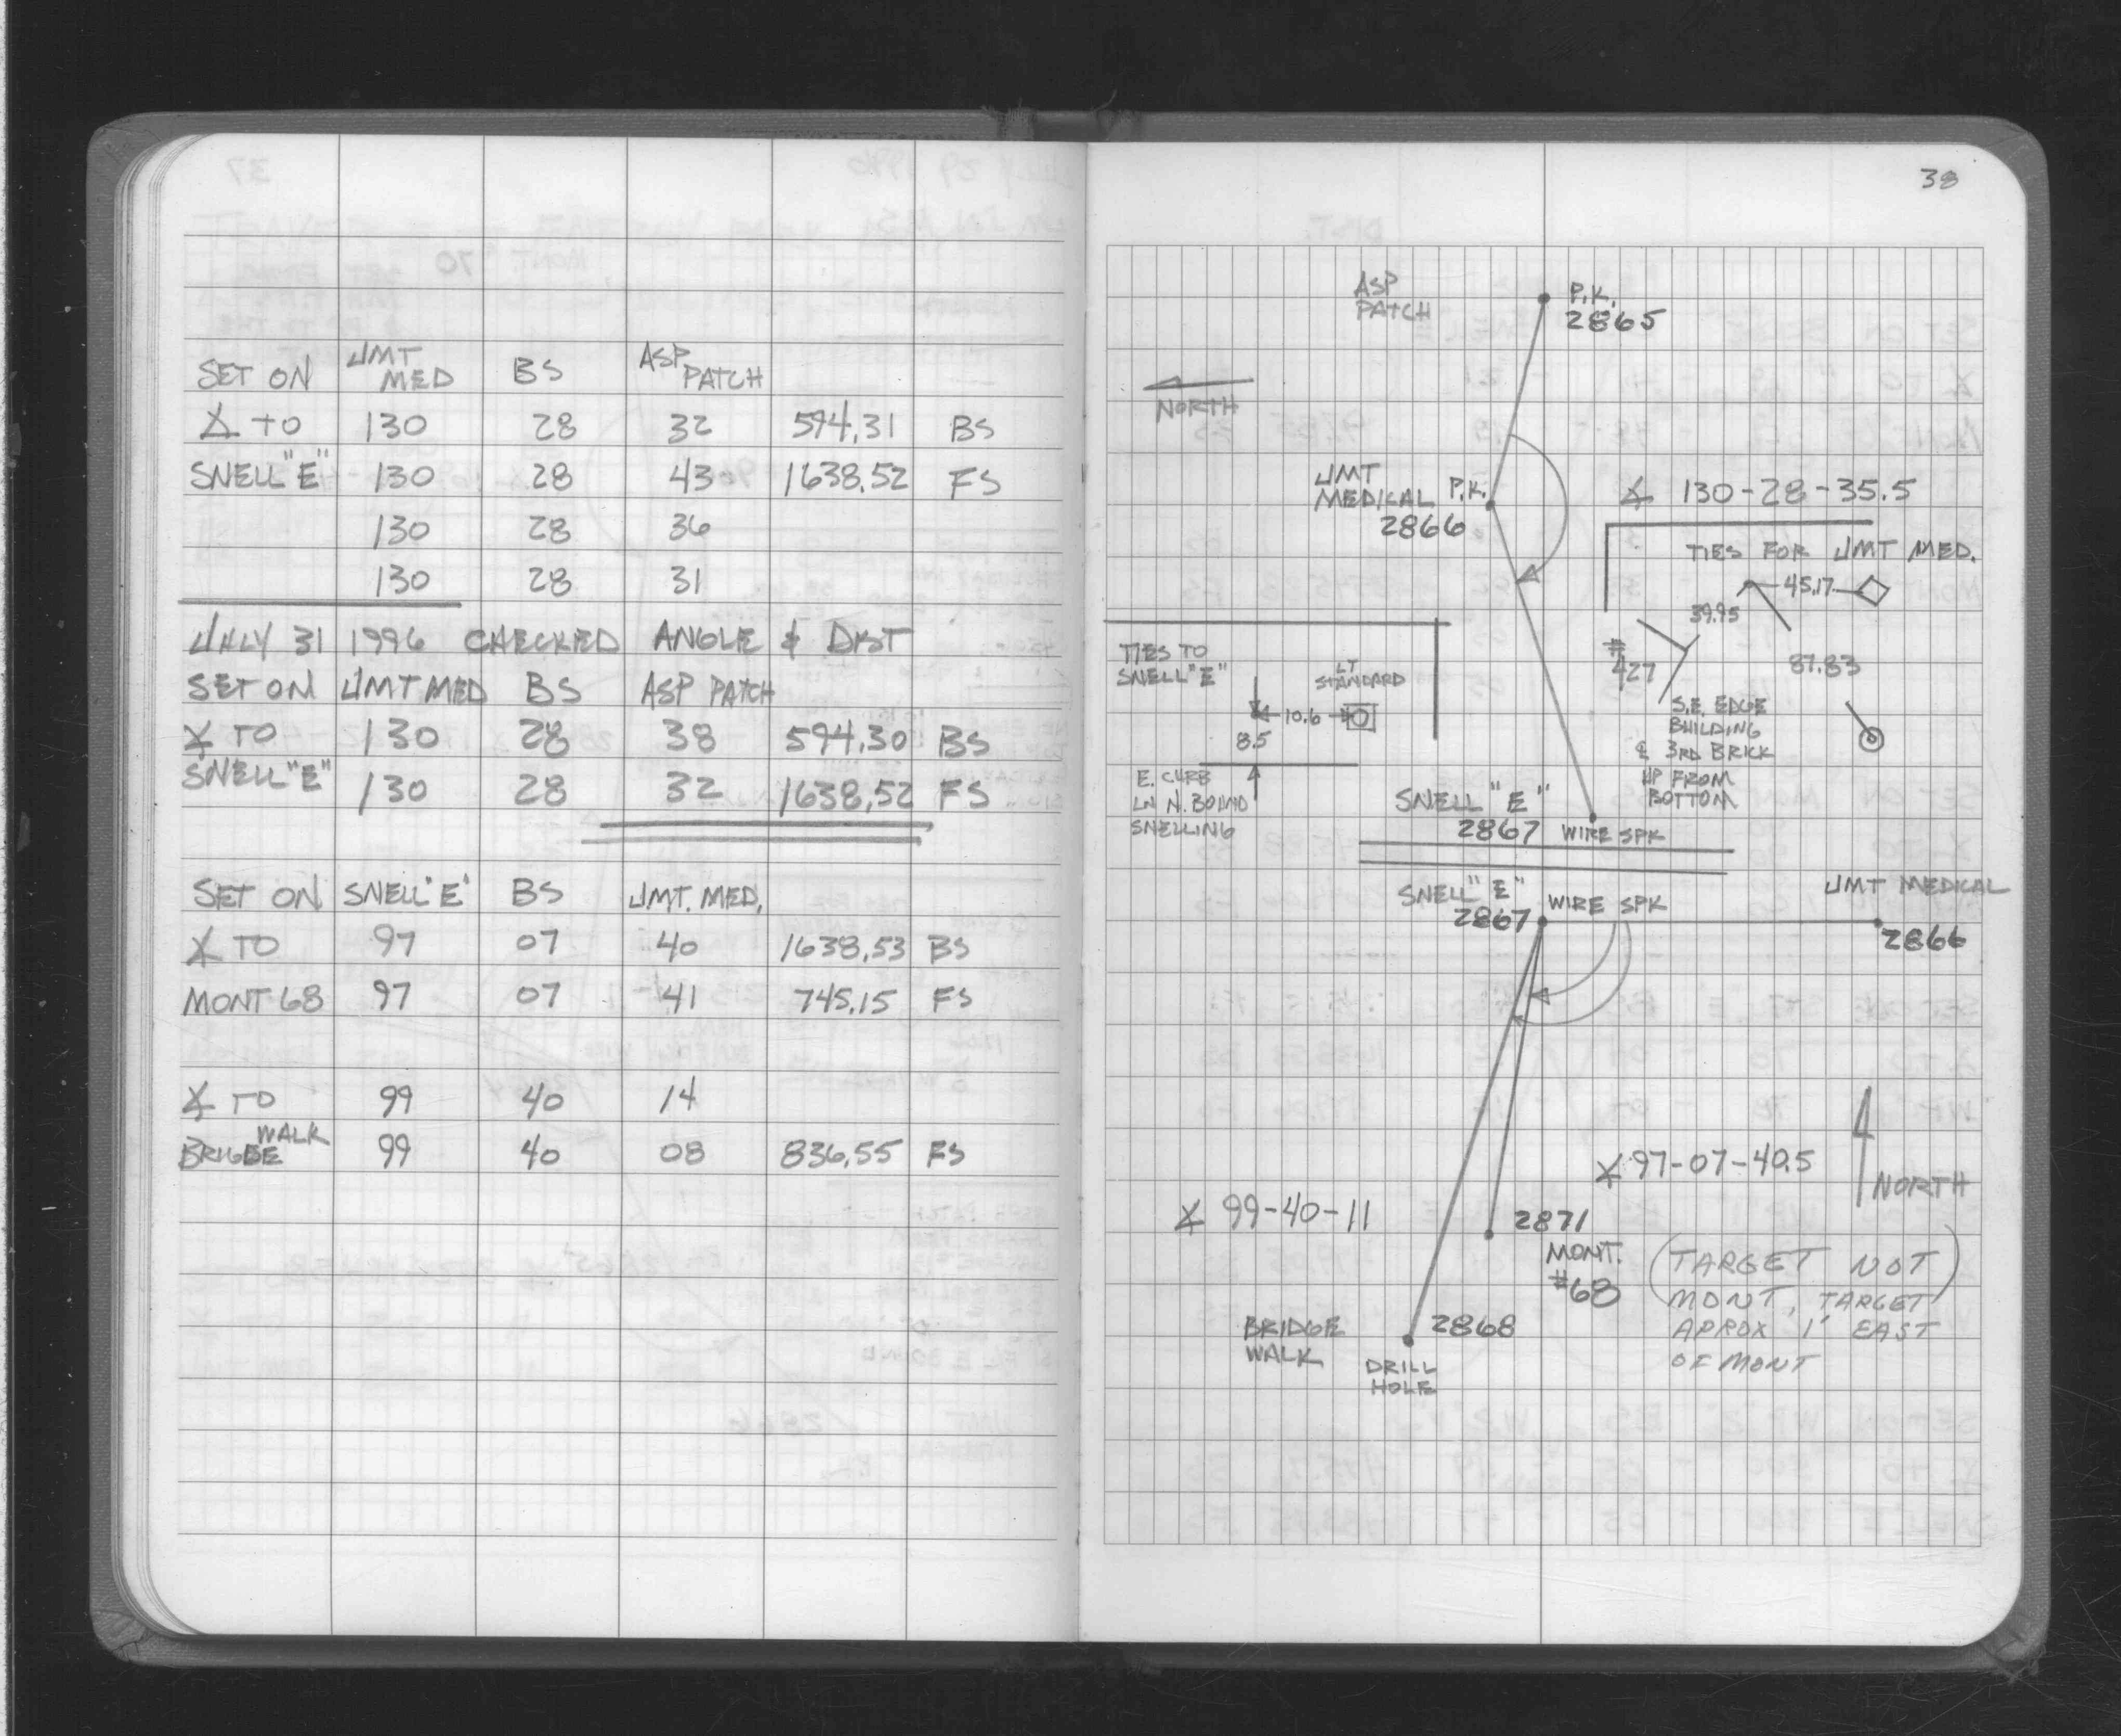 SET ON JMT MED BS ASP PATCH
∡ TO 130 28 32 594.31 BS
SNELL "E" 130 28 43 1638.52 FS
130 28 36
130 28 31
JULY 31 1996 CHECKED ANGLE & DIST
SET ON JMT MED BS ASP PATCH
∡ TO 130 28 38 594.30 BS
SNELL "E" 130 28 32 1638.52 FS
SET ON SNELL "E" BS JMT. MED.
∡ TO 97 07 40 1638.53 BS
MONT 68 97 07 41 745.15 FS
∡ TO 99 40 14
BRIDGE WALK 99 40 08 836.55 FS
38
ASP
PATCH
P.K.
2865
NORTH
JMT
MEDICAL P.K.
2866
∡ 130-28-35.5
TIES FOR JMT MED.
45.17
39.95
#
427
87.83
S.E. EDGE
BUILDING
& 3RD BRICK
UP FROM
BOTTOM
TIES TO
SNELL "E"
LT
STANDARD
10.6
8.5
E. CURB
LN N. BOUND
SNELLING
SNELL "E"
2867 WIRE SPK
SNELL "E"
2867 WIRE SPK
JMT MEDICAL
2866
∡ 97-07-40.5
NORTH
∡ 99-40-11
2871
MONT.
#68
(TARGET NOT
MONT, TARGET)
APROX 1' EAST
OF MONT
BRIDGE
WALK
2868
DRILL
HOLE